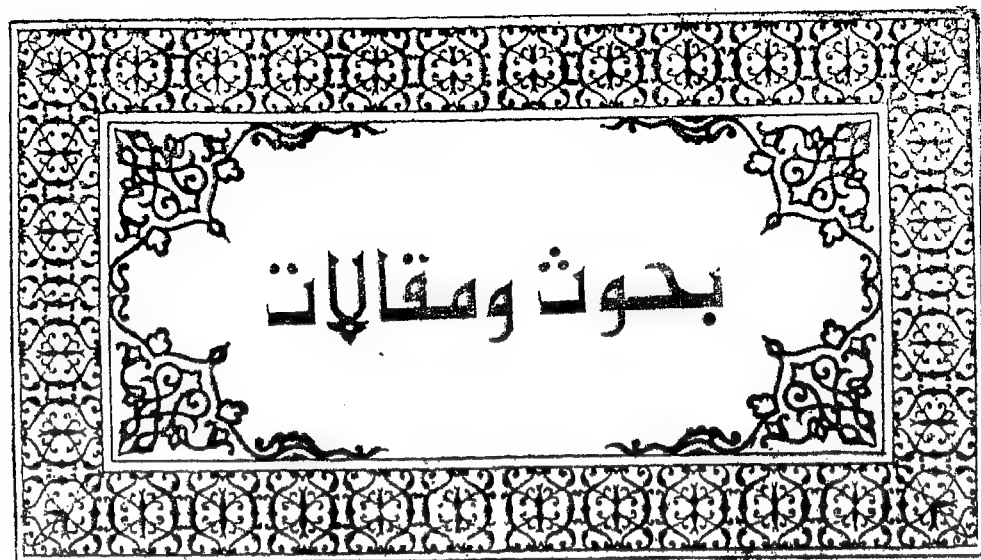 بحوث ومقالات